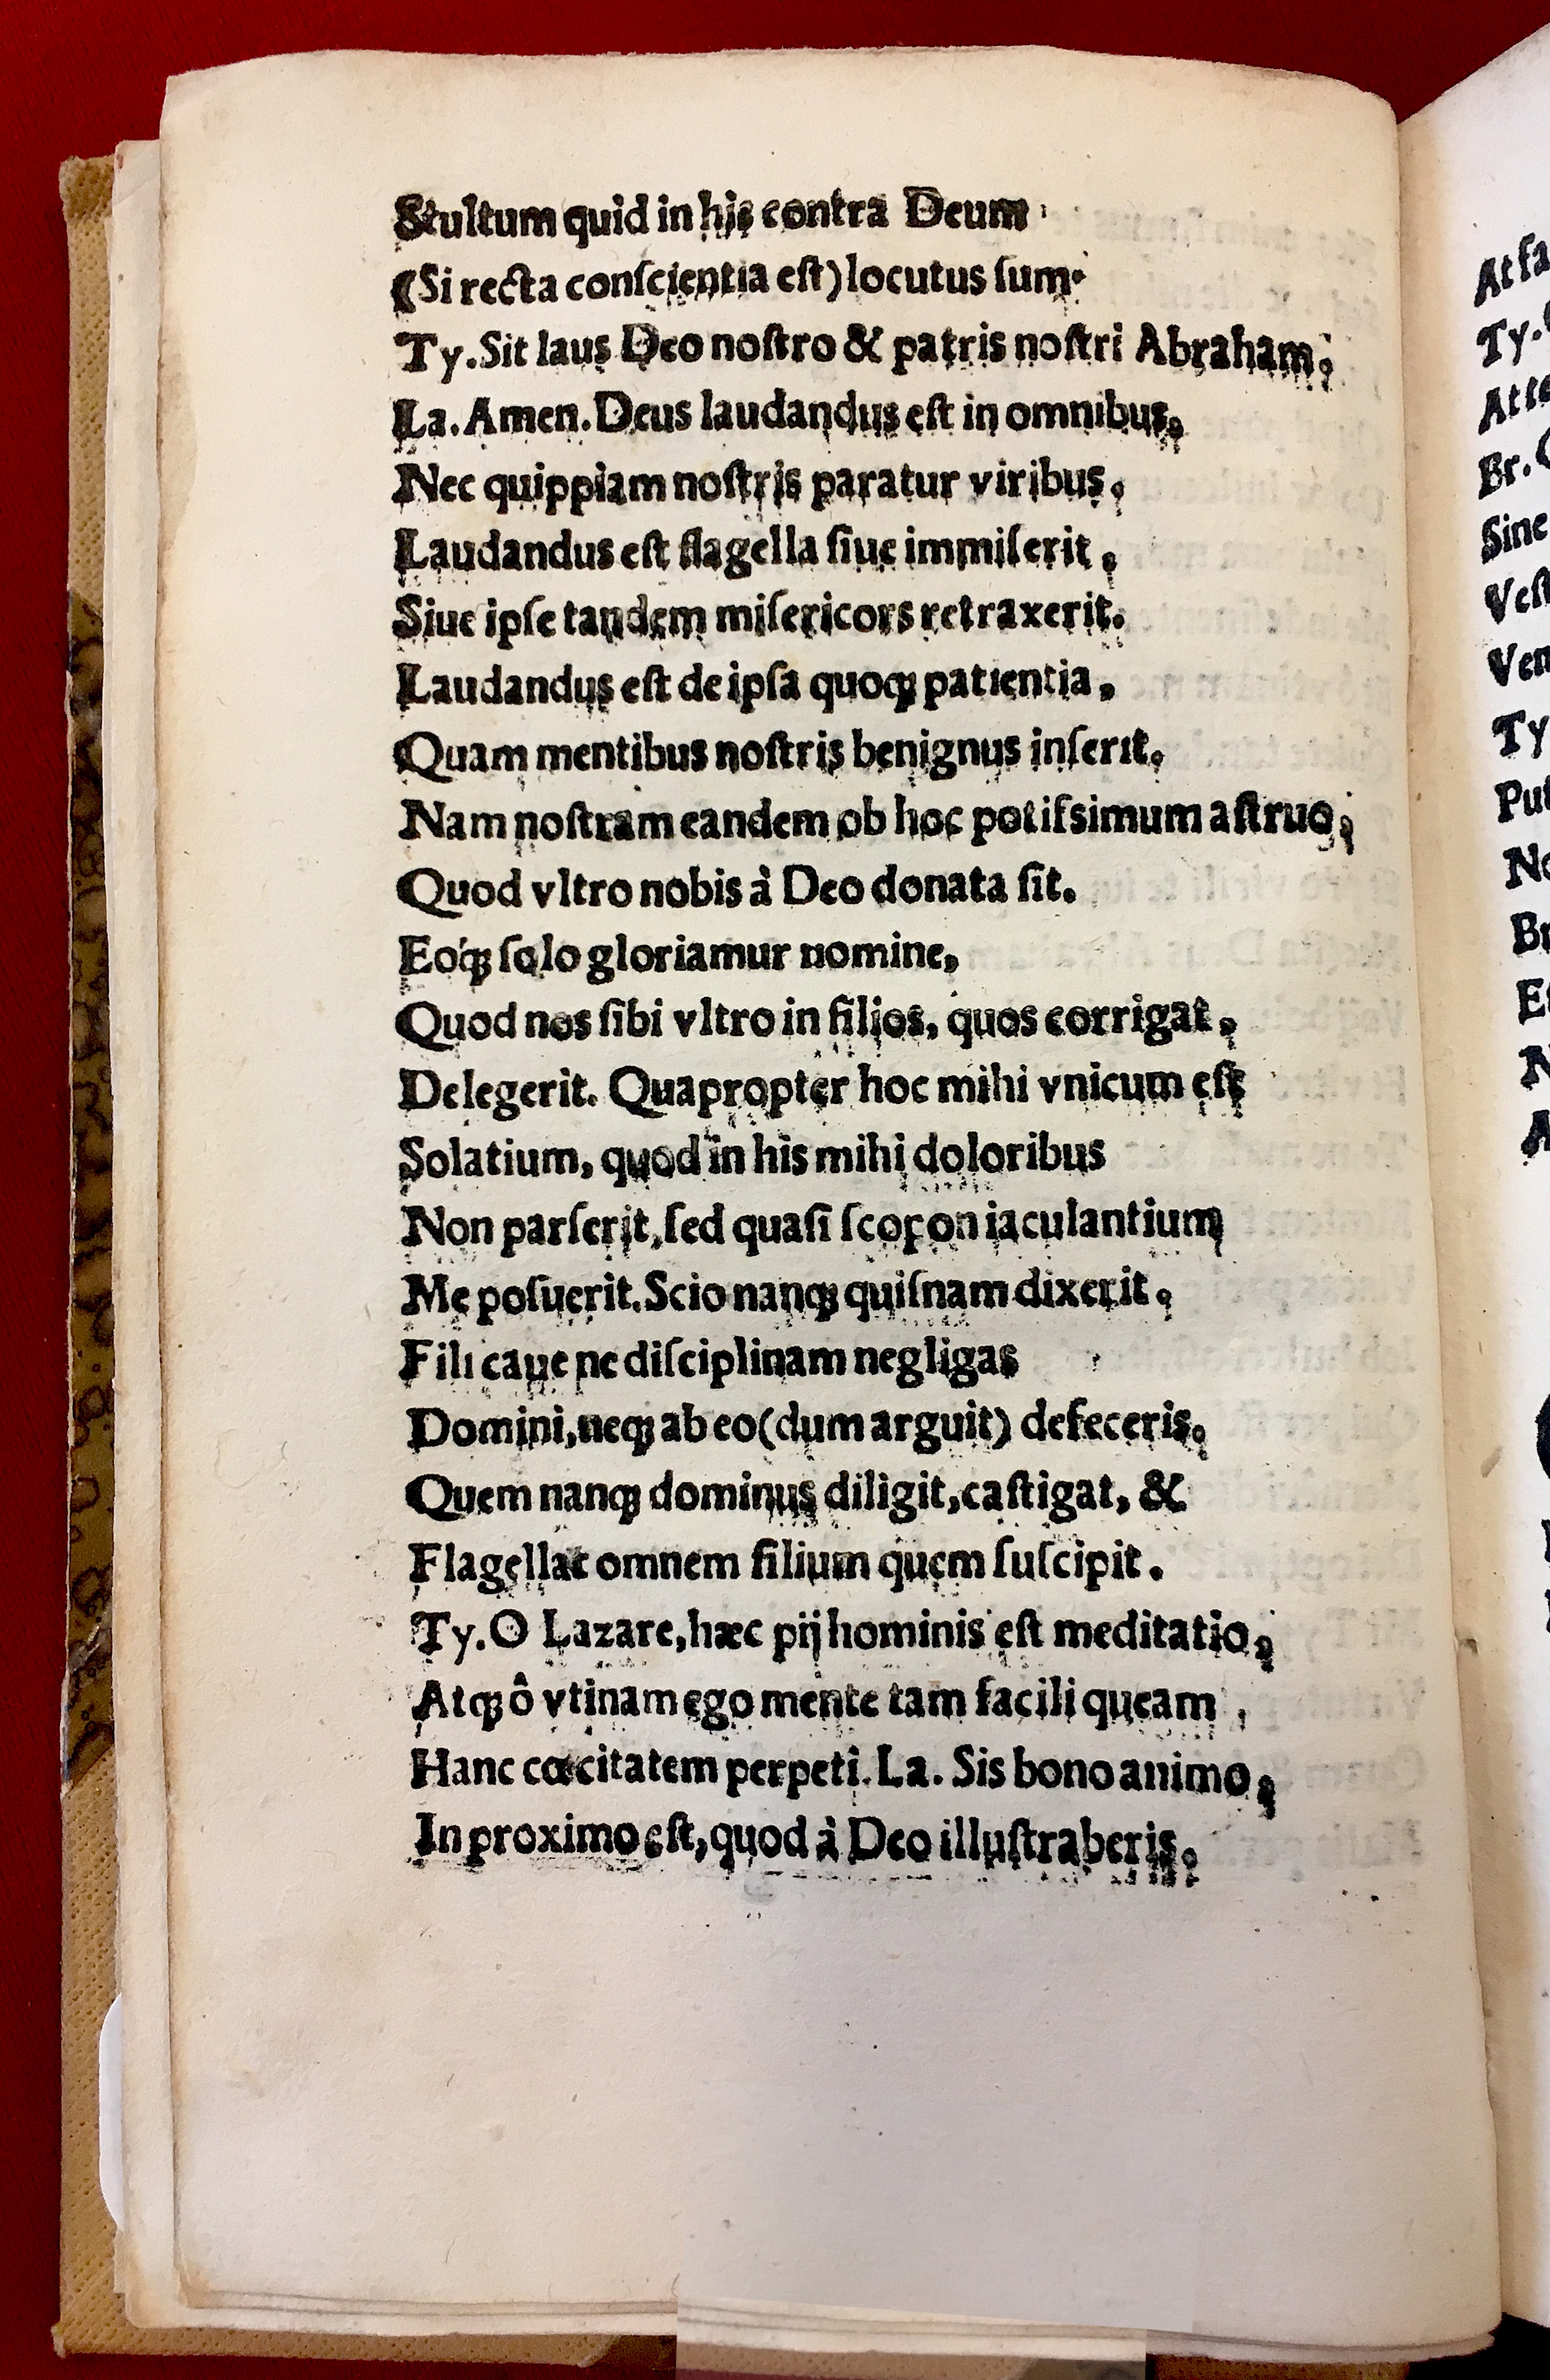 Stultum quid in his contra Deum
(Si recta conſcientia eſt) locutus ſum.
Ty. Sit laus Deo noſtro & patris noſtri Abraham.
La. Amen. Deus laudandus eſt in omnibus.
Nec quippiam noſtris paratur viribus.
Laudandus eſt flagella ſiue immiſerit,
Siue ipſe tandem miſericors retraxerit.
Laudandus eſt de ipſa quoqꝫ patientia,
Quam mentibus noſtris benignus inſerit.
Nam noſtram eandem ob hoc potiſsimum aſtruo,
Quod vltro nobis à Deo donata ſit.
Eoq́ꝫ ſolo gloriamur nomine,
Quod nos ſibi vltro in filios, quos corrigat,
Delegerit. Quapropter hoc mihi vnicum eſt
Solatium, quod in his mihi doloribus
Non parſerit, ſed quaſi ſcopon iaculantium
Me poſuerit. Scio nanqꝫ quiſnam dixerit.
Fili caue ne diſciplinam negligas
Domini, neqꝫ ab eo (dum arguit) defeceris.
Quem nanqꝫ dominus diligit, caſtigat, &
Flagellat omnem filium quem ſuſcipit.
Ty. O Lazare, hæc pij hominis eſt meditatio,
Atqꝫ ô vtinam ego mente tam facili queam
Hanc cœcitatem perpeti. La. Sis bono animo,
In proximo eſt, quod à Deo illuſtraberis.
At fa
Ty.
At te
Br.
Sine
Veſt
Ven
Ty
Put
No
Br
Et
N
A